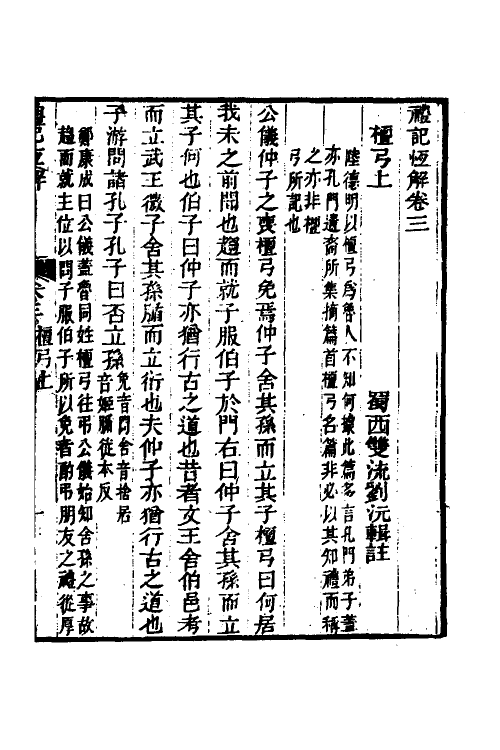 禮記恆解卷三
蜀西雙流劉沅輯註
檀弓上
陸德明以檀弓為魯人不知何據此篇多言孔門弟子蓋
亦孔門遺裔所集摘篇首檀弓名篇非必以其知禮而稱
之亦非檀
弓所記也
公儀仲子之喪檀弓免焉仲子舍其孫而立其子檀弓曰何居
我未之前聞也趨而就子服伯子於門右曰仲子舍其孫而立
其子何也伯子曰仲子亦猶行古之道也昔者文王舍伯邑考
而立武王微子舍其孫腯而立衍也夫仲子亦猶行古之道也
子游問諸孔子孔子曰否立孫
免音問舍音捨居
音姬腯徒本反
鄭康成曰公儀蓋魯同姓檀弓往弔公儀始知舍孫之事故
趨而就主位以問子服伯子所以免者酌弔朋友之禮從厚
禮記恆解
卷三
檀弓上
一